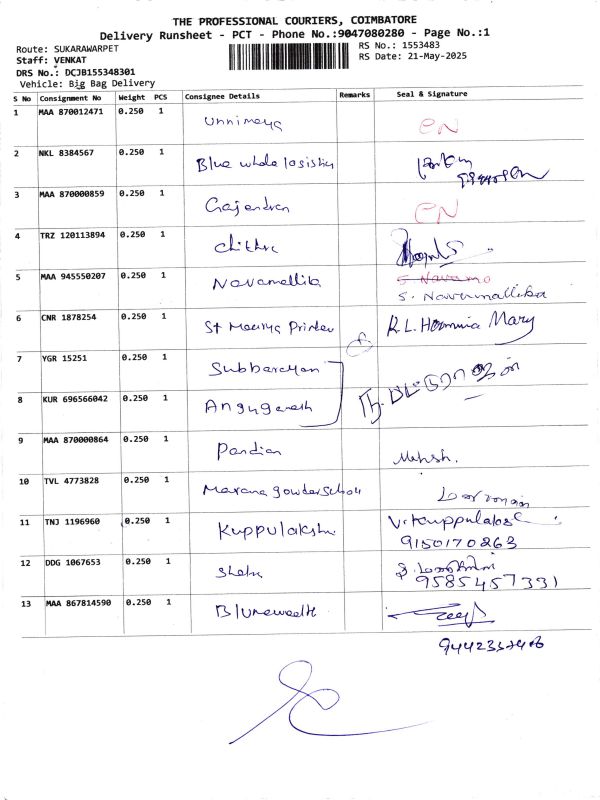 THE PROFESSIONAL COURIERS, COIMBATORE
Delivery Runsheet - PCT - Phone No.:9047080280 - Page No.:1
Route: SUKARAWARPET
RS No.: 1553483
Staff: VENKAT
RS Date: 21-May-2025
DRS No.: DCJB155348301
Vehicle: Big Bag Delivery
S No Consignment No Weight PCS Consignee Details Remarks Seal & Signature
1 MAA 870012471 0.250 1 Unnimaya EN
2 NKL 8384567 0.250 1 Blue whale
3 MAA 870000859 0.250 1 Gajendran EN
4 TRZ 120113894 0.250 1 Chithra
5 MAA 945550207 0.250 1 Navamallika S. Navamo
S. Navamallika
6 CNR 1878254 0.250 1 St Printer R.L. Mary
7 YGR 15251 0.250 1 Subbarayan
8 KUR 696566042 0.250 1
9 MAA 870000864 0.250 1 Pandian
10 TVL 4773828 0.250 1
11 TNJ 1196960 0.250 1 Kuppulakshmi
9150170263
12 DDG 1067653 0.250 1
9585457331
13 MAA 867814590 0.250 1